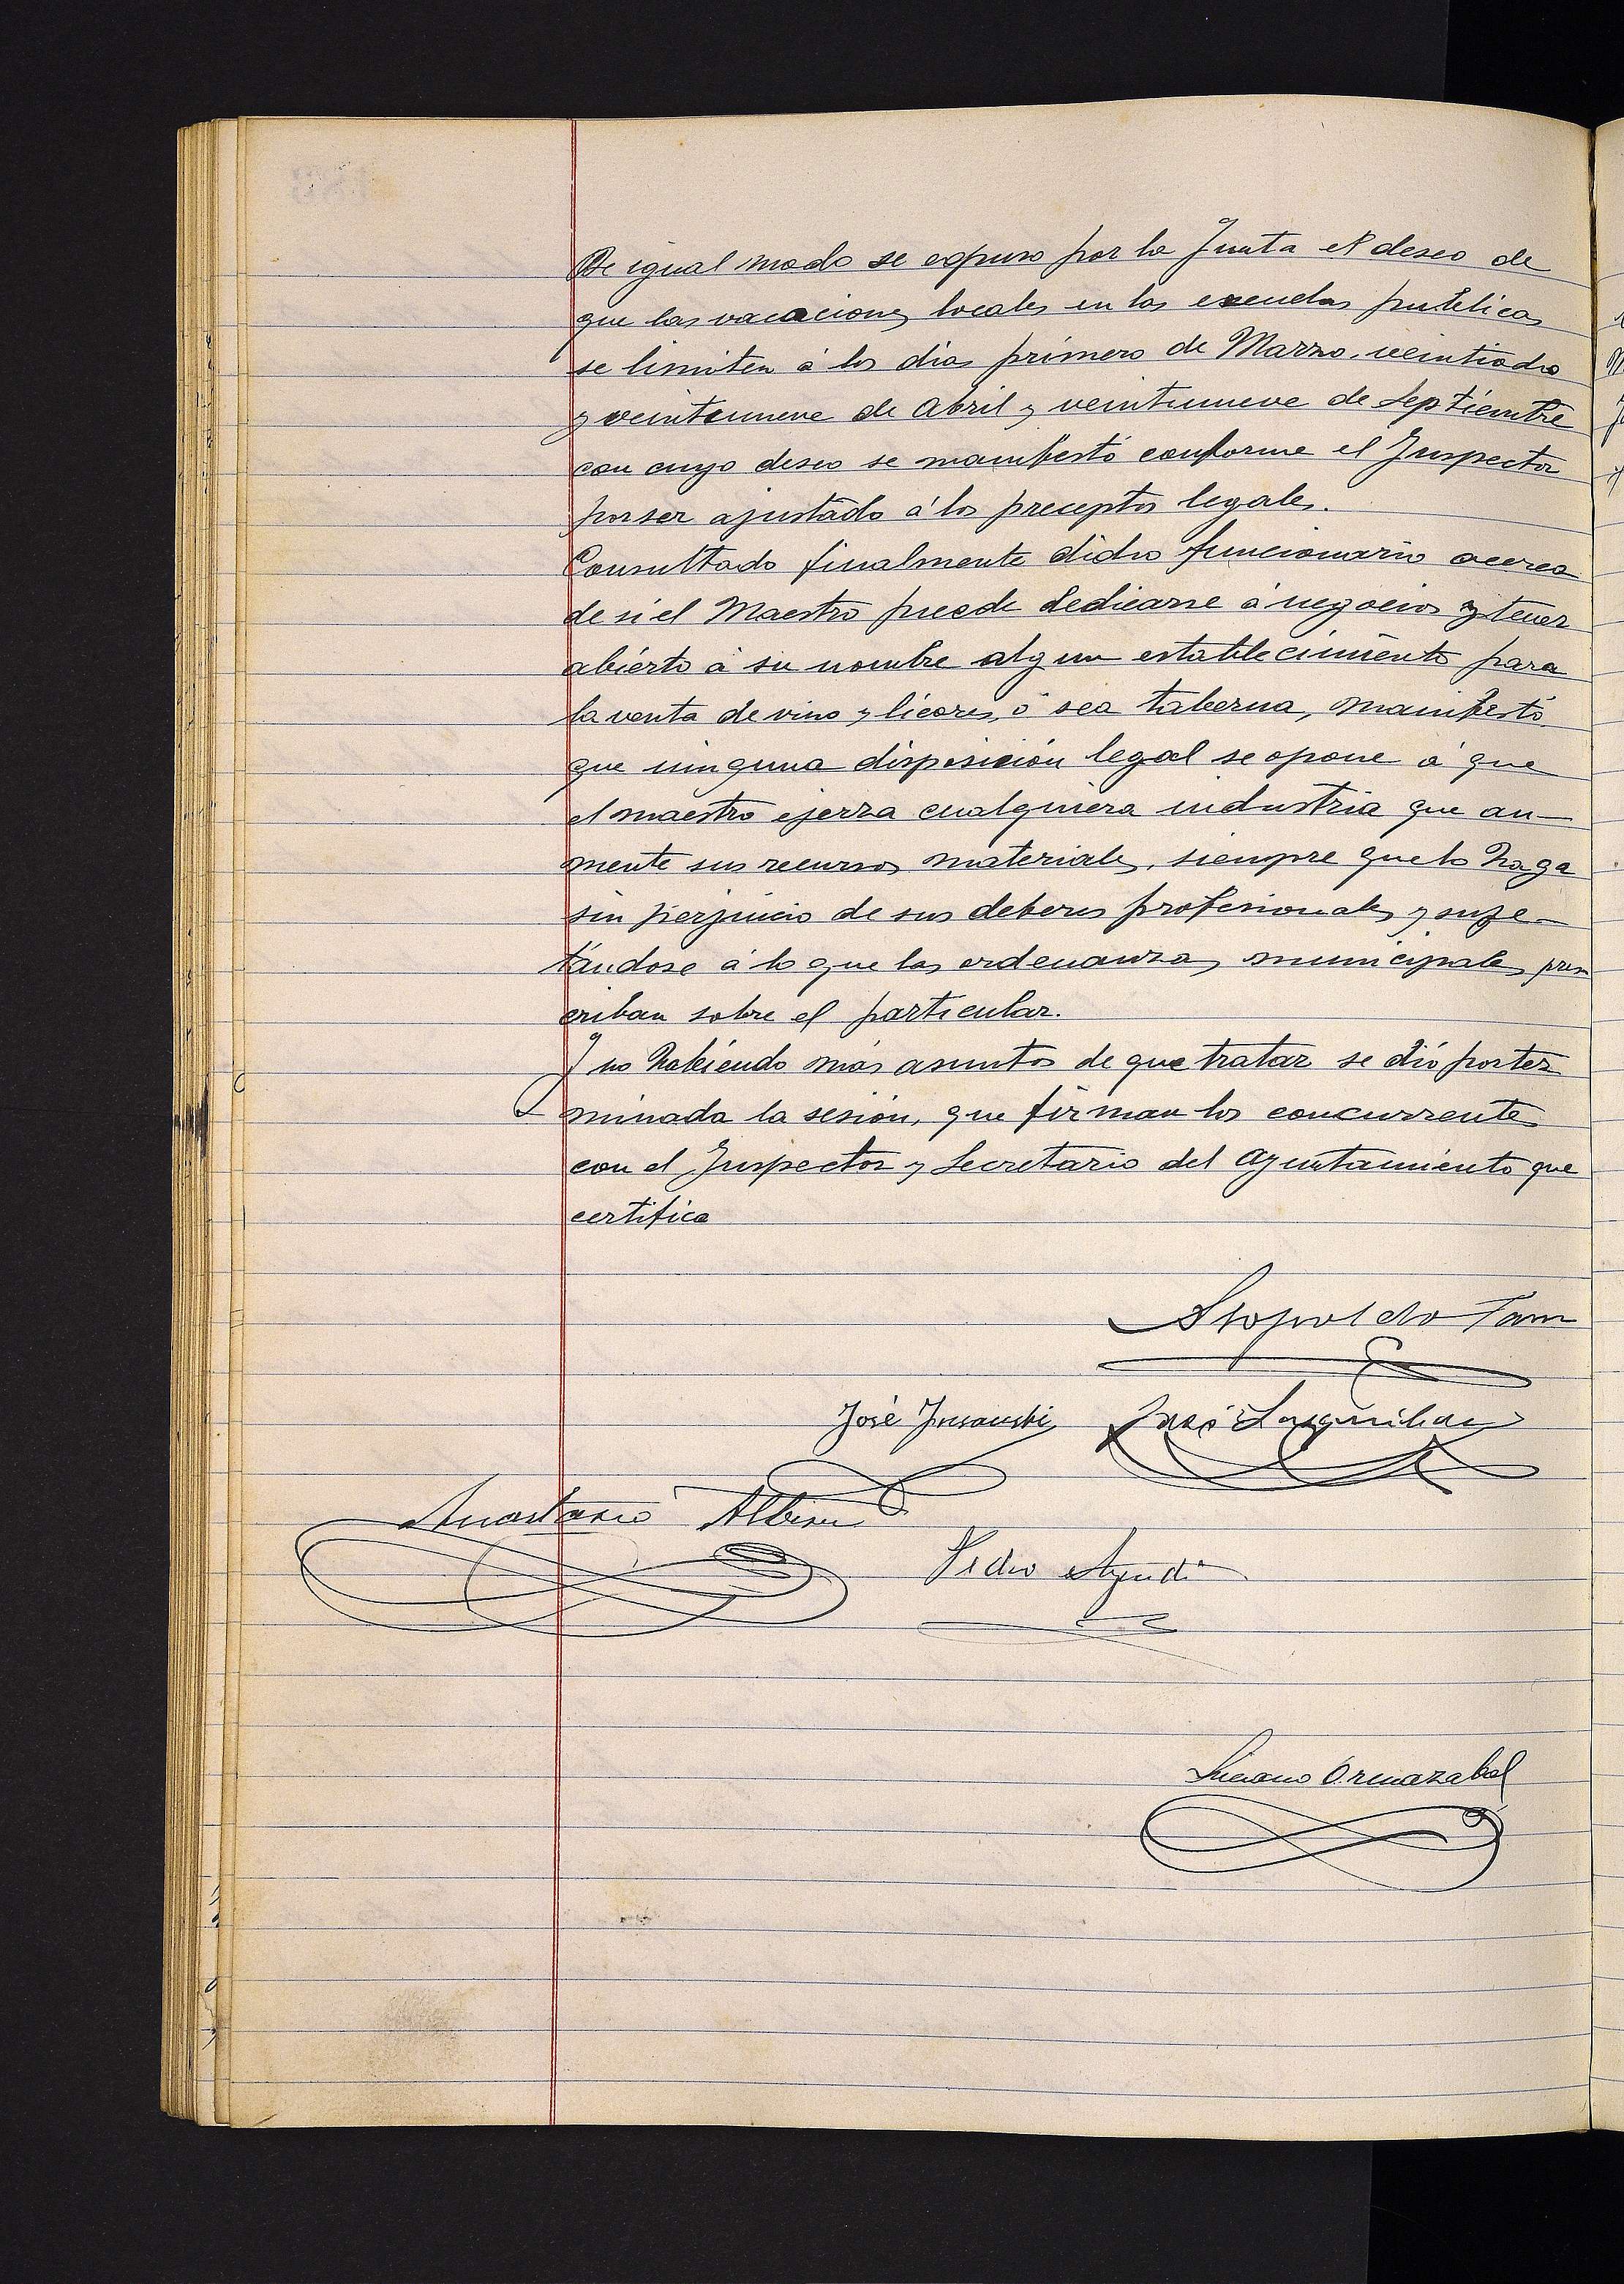 De igual modo se expuso por la Junta el deseo de
que las vacaciones locales en las escuelas públicas
se limiten á los dias primero de Marzo, veintiodos
y veintinueve de Abril y veintinueve de Septiembre
con cuyo deseo se manifestó conforme el Inspector
por ser ajustado á los preceptos legales.
Consultado finalmente dicho funcionario acerca
de si el Maestro puede dedicarse á negocios y tener
abierto á su nombre algun establecimiento para
la venta de vino y licores, ó sea taberna, manifestó
que ninguna disposición legal se opone á que
el maestro ejerza cualquiera industria que au-
mente sus recursos materiales, siempre que lo haga
sin perjuicio de sus deberes profesionales y suje-
tándose á lo que las ordenanzas municipales pres
criban sobre el particular.
Y no habiendo más asuntos de que tratar se dió por ter
minada la sesión, que firman los concurrentes
con el Inspector y Secretario del Ayuntamiento que
certifica
Leopoldo
José José
Anastasio
Pedro
Luciano Ormazabal